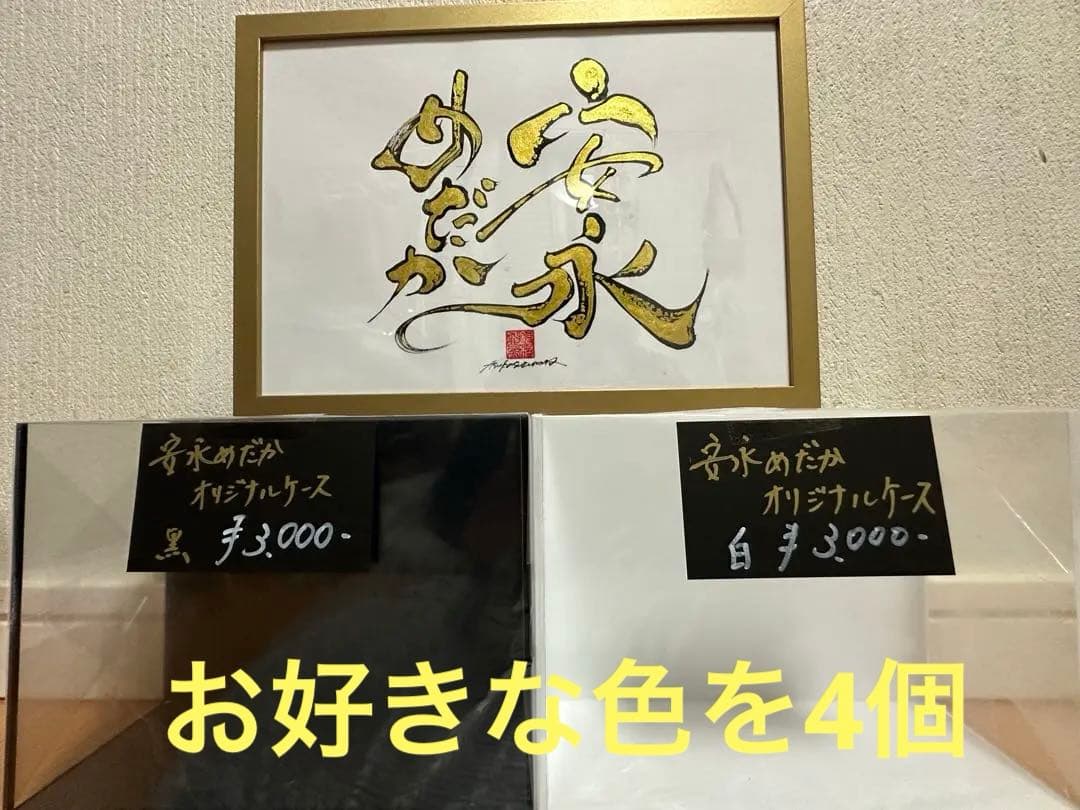 安永
めだか
安永めだか
オリジナルケース
黒 ¥3,000-
安永めだか
オリジナルケース
白 ¥3,000-
お好きな色を4個